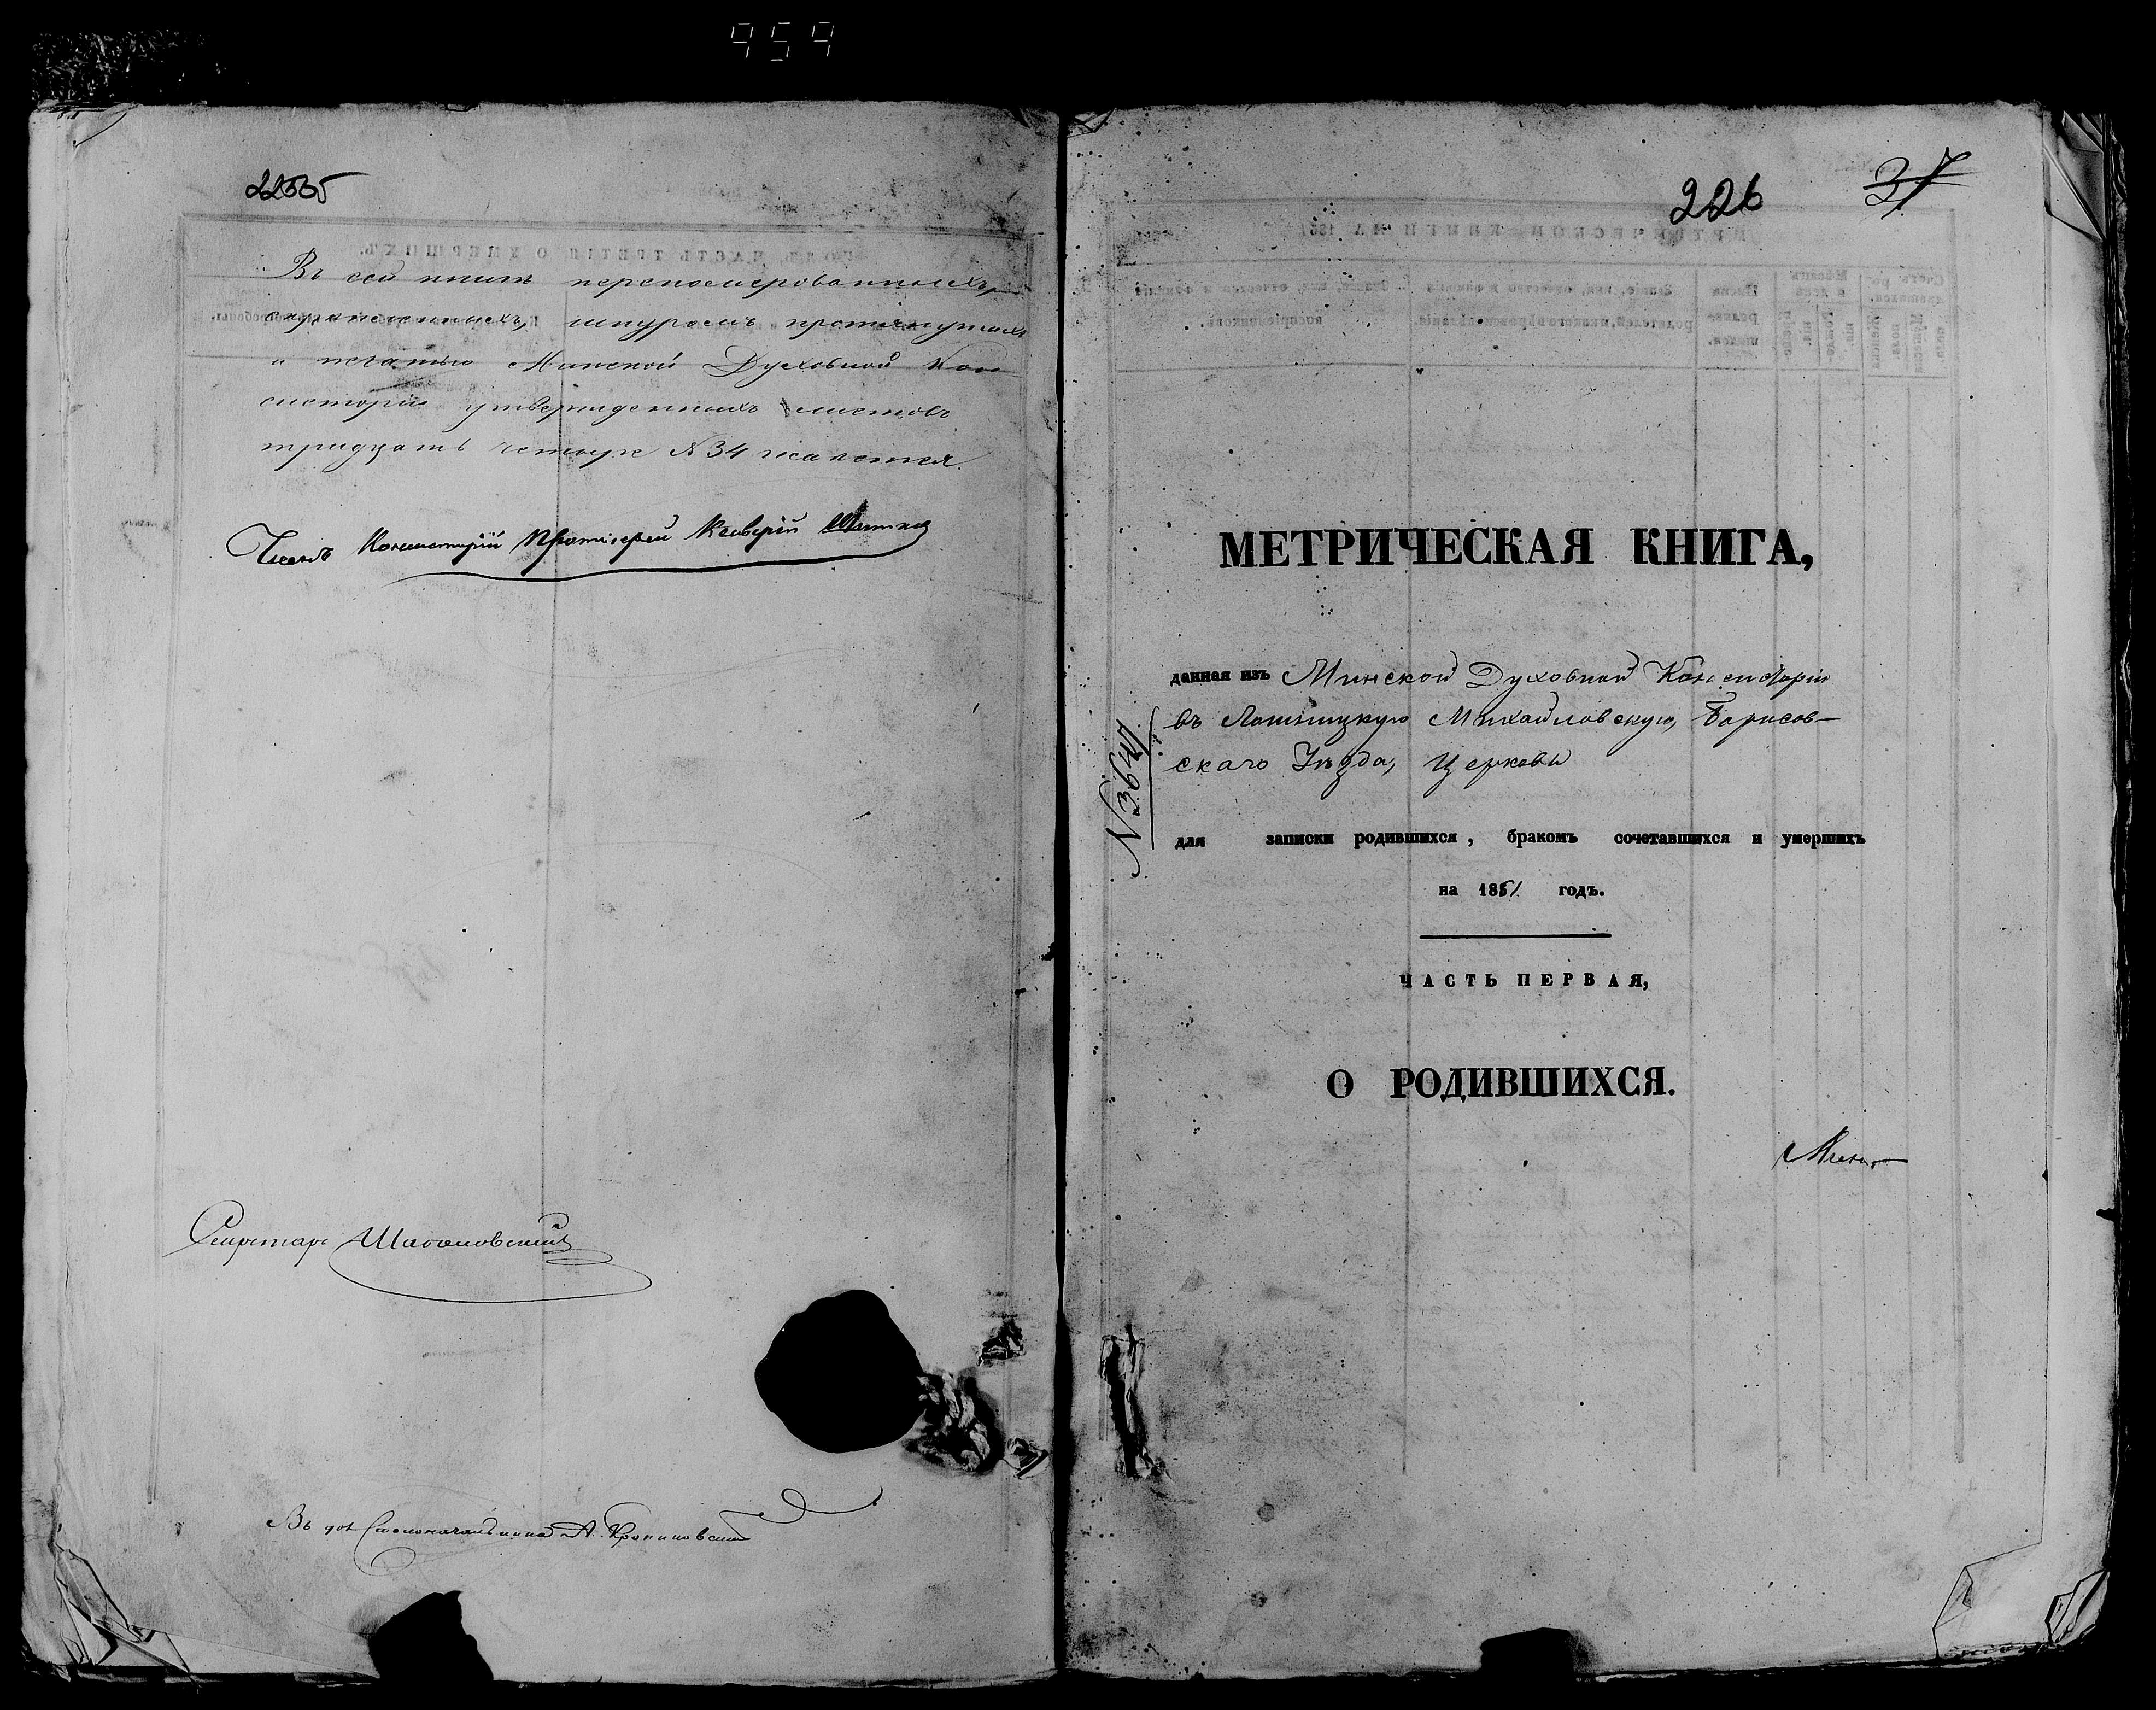 959
Въ сей книгѣ перенумерованныхъ,
скрѣпленныхъ, шнуромъ протянутыхъ
и печатью Минской Духовной Кон
систоріи утвержденныхъ листовъ
тридцать четыре №34 числится.
Членъ Консисторіи Протоіерей
Секретарь
Въ дол. Столоначальника А.
226 37
МЕТРИЧЕСКАЯ КНИГА,
данная изъ Минской Духовной Консисторіи
въ Лошницкую Михайловскую, Борисов–
скаго Уѣзда, Церковь
№
для записки родившихся, бракомъ сочетавшихся и умершихъ
на 1851 годъ.
ЧАСТЬ ПЕРВАЯ,
О РОДИВШИХСЯ.